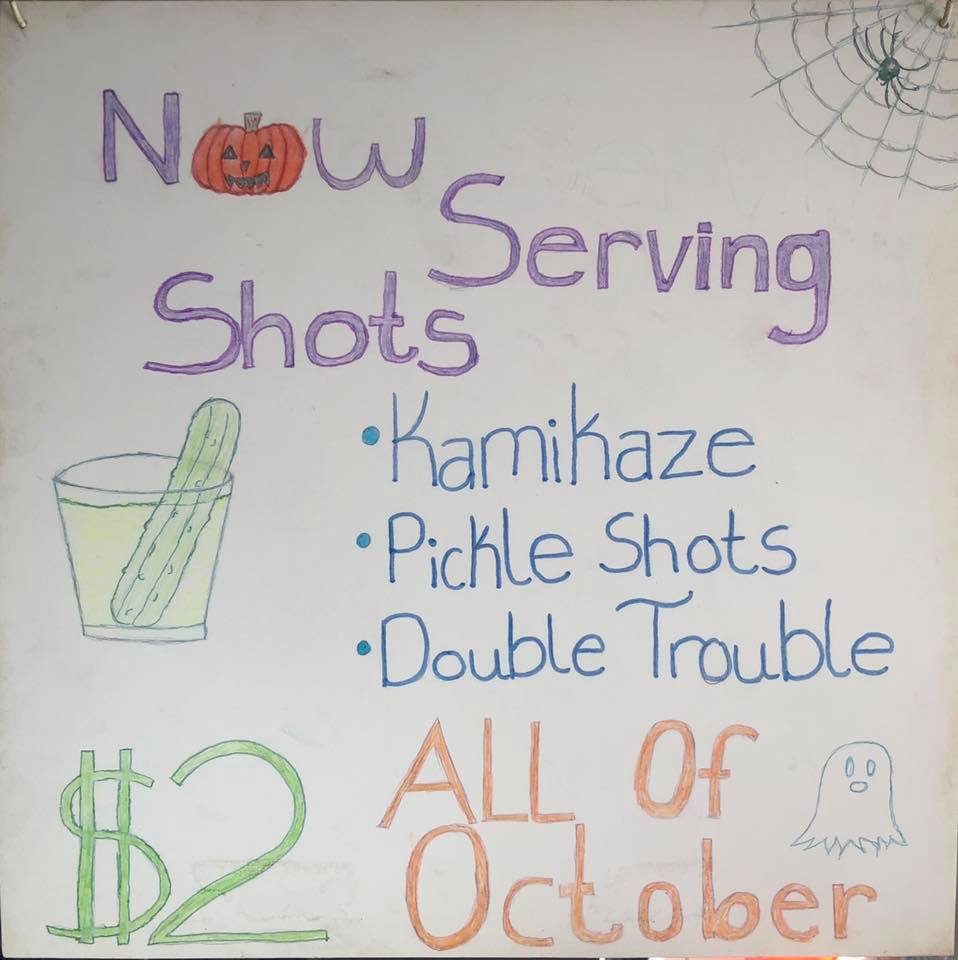 Now
Serving
Shots
• Kamikaze
• Pickle Shots
• Double Trouble
$2 ALL Of
October